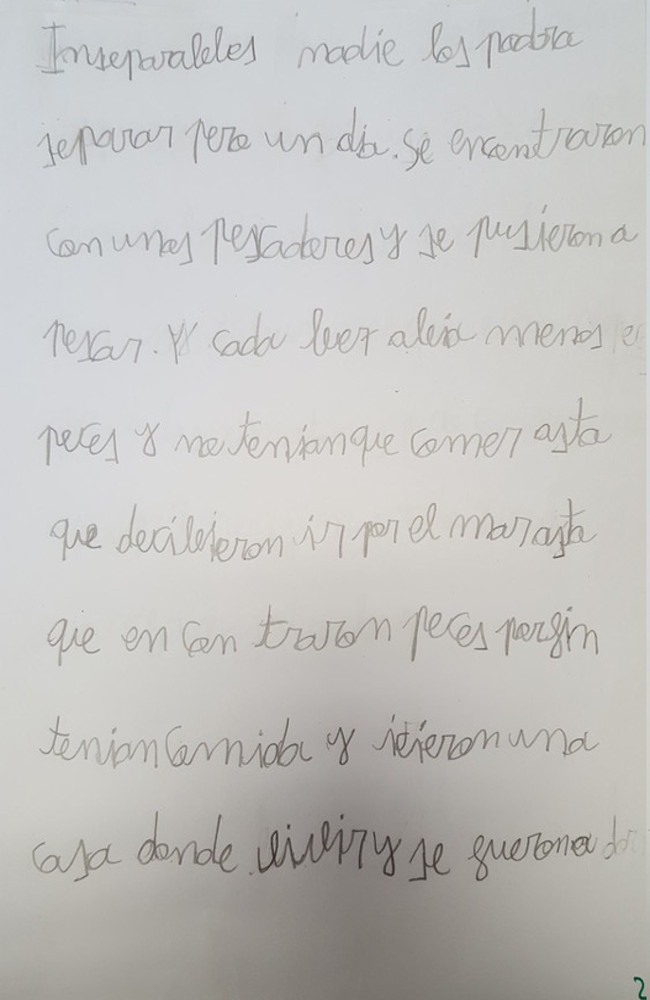 Inseparables nadie los podra
separar pero un dia. Se encontraron
con unos pescadores y se pusieron a
pescar. Y cada bez abia menos
peces y no tenian que comer asta
que decidieron ir por el mar asta
que en con traron peces porfin
tenian comida y icieron una
casa donde vivir y se fueron a
2